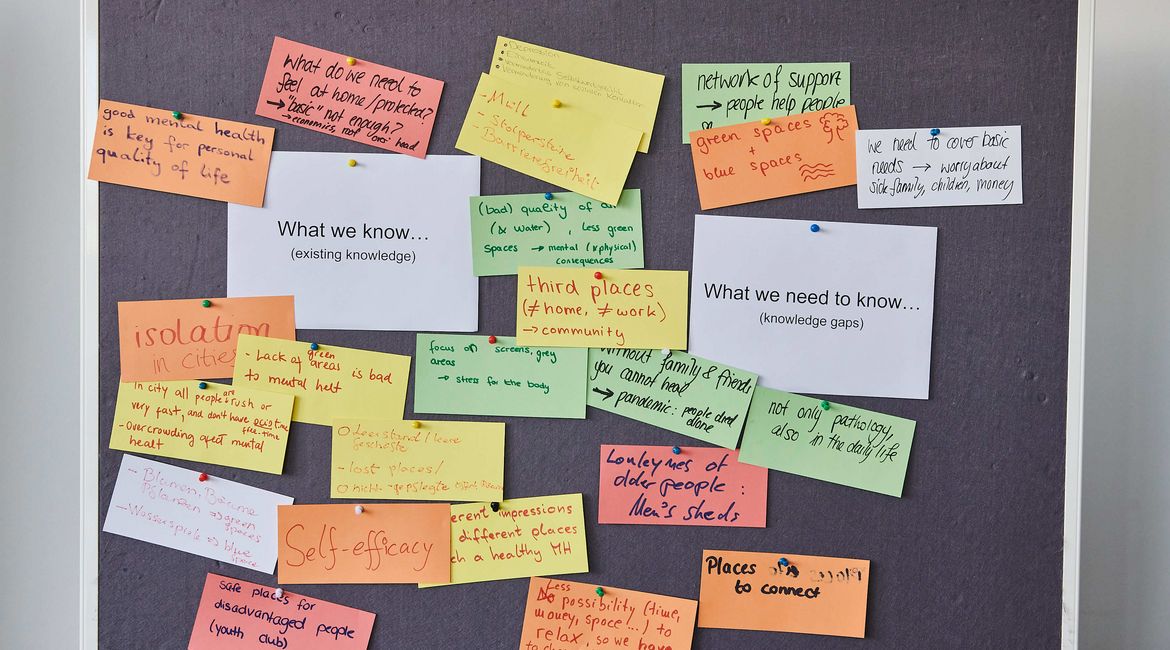 What do we need to
feel at home/protected?
→ "basic" not enough?
→ economics, roof over head
• Depression
• Einsamkeit
• Vermindertes Selbstwertgefühl
• Verminderung von sozialen Kontakten
- Müll
- Stolpersteine
- Barrierefreiheit
network of support
→ people help people
good mental health
is key for personal
quality of life
green spaces
+
blue spaces
we need to cover basic
needs → worry about
sick family, children, money
What we know…
(existing knowledge)
(bad) quality of air
(& water), less green
spaces → mental (& physical)
consequences
What we need to know…
(knowledge gaps)
third places
(≠ home, ≠ work)
→ community
isolation
in cities
- Lack of green
areas is bad
to mental helt
focus on screens, grey
areas
→ stress for the body
without family & friends
you cannot heal
→ pandemic: people died
alone
In city all people are rush or
very fast, and don't have time
free-time
- Overcrowding afect mental
healt
not only pathology,
also in the daily life
Leerstand / leere
Geschäfte
- lost places/
nicht-gepflegte
Lonleyness of
older people:
Men's sheds
- Blumen, Bäume
Pflanzen => green
spaces
- Wasserspiele => blue
space
Self-efficacy
erent impressions
different places
ch a healthy MH
Places
to connect
safe places for
disadvantaged people
(youth club)
Less
No possibility (time,
money, space!...) to
relax, so we have